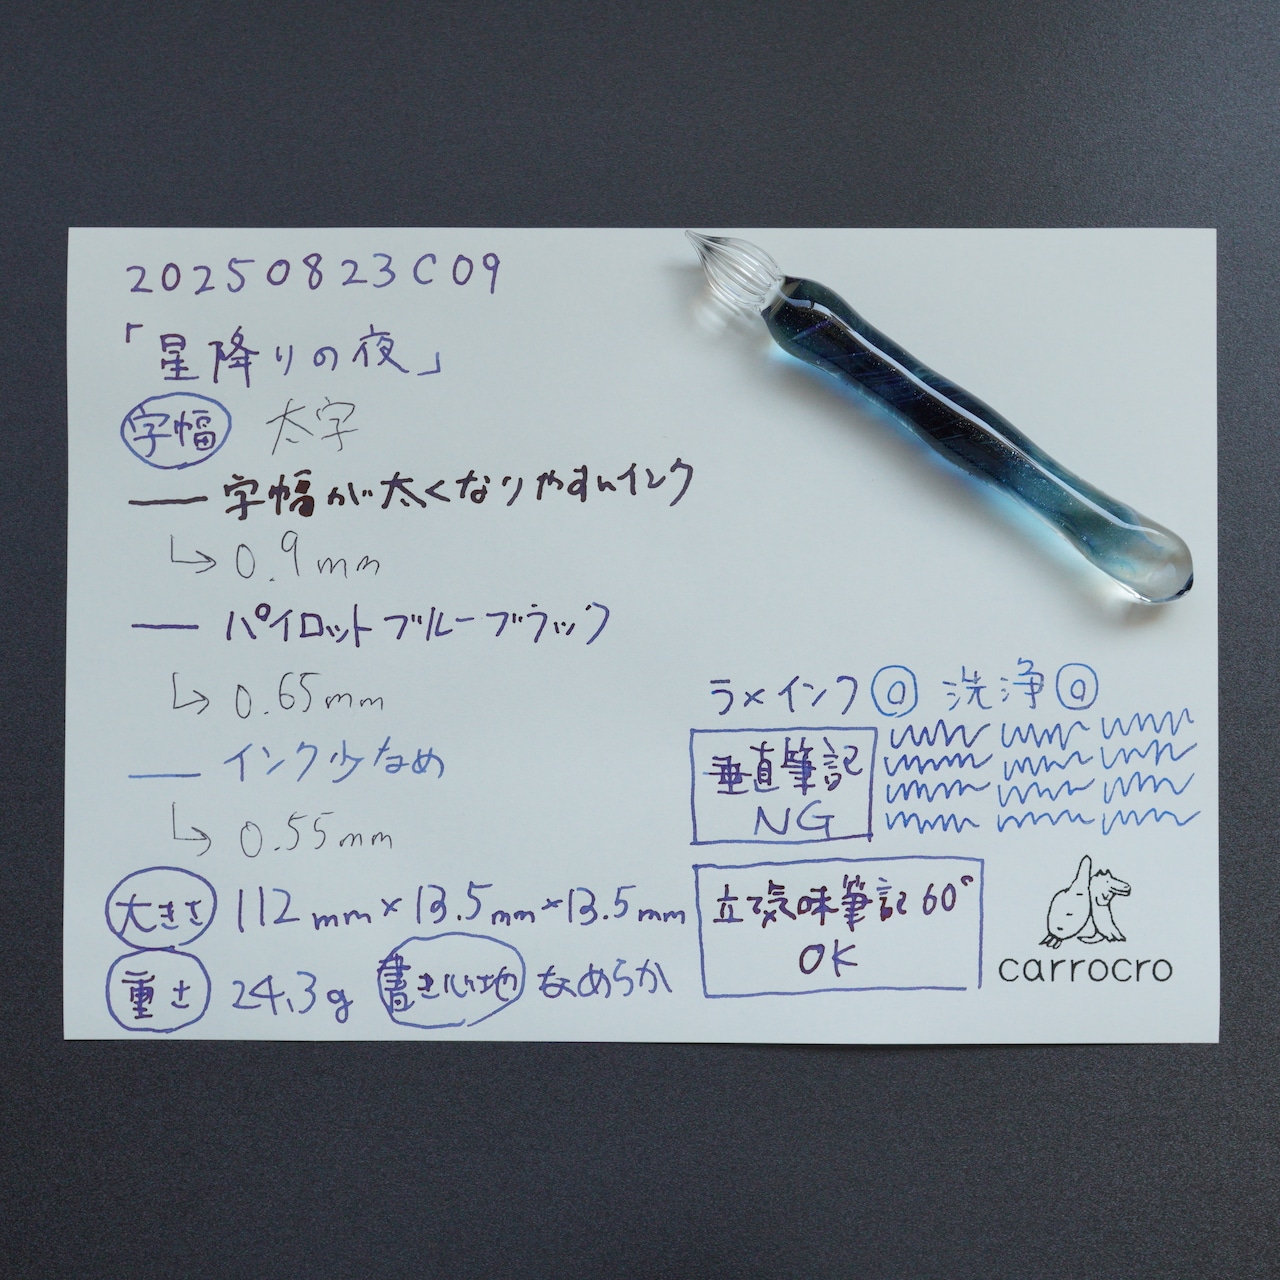 20250823C09
「星降りの夜」
字幅 太字
字幅が太くなりやすいインク
↳ 0.9mm
パイロットブルーブラック
↳ 0.65mm
インク少なめ
↳ 0.55mm
大きさ 112mm×13.5mm×13.5mm
重さ 24.3g 書き心地 なめらか
ラメインク ◎ 洗浄 ◎
垂直筆記
NG
立て気味筆記60°
OK
carrocro